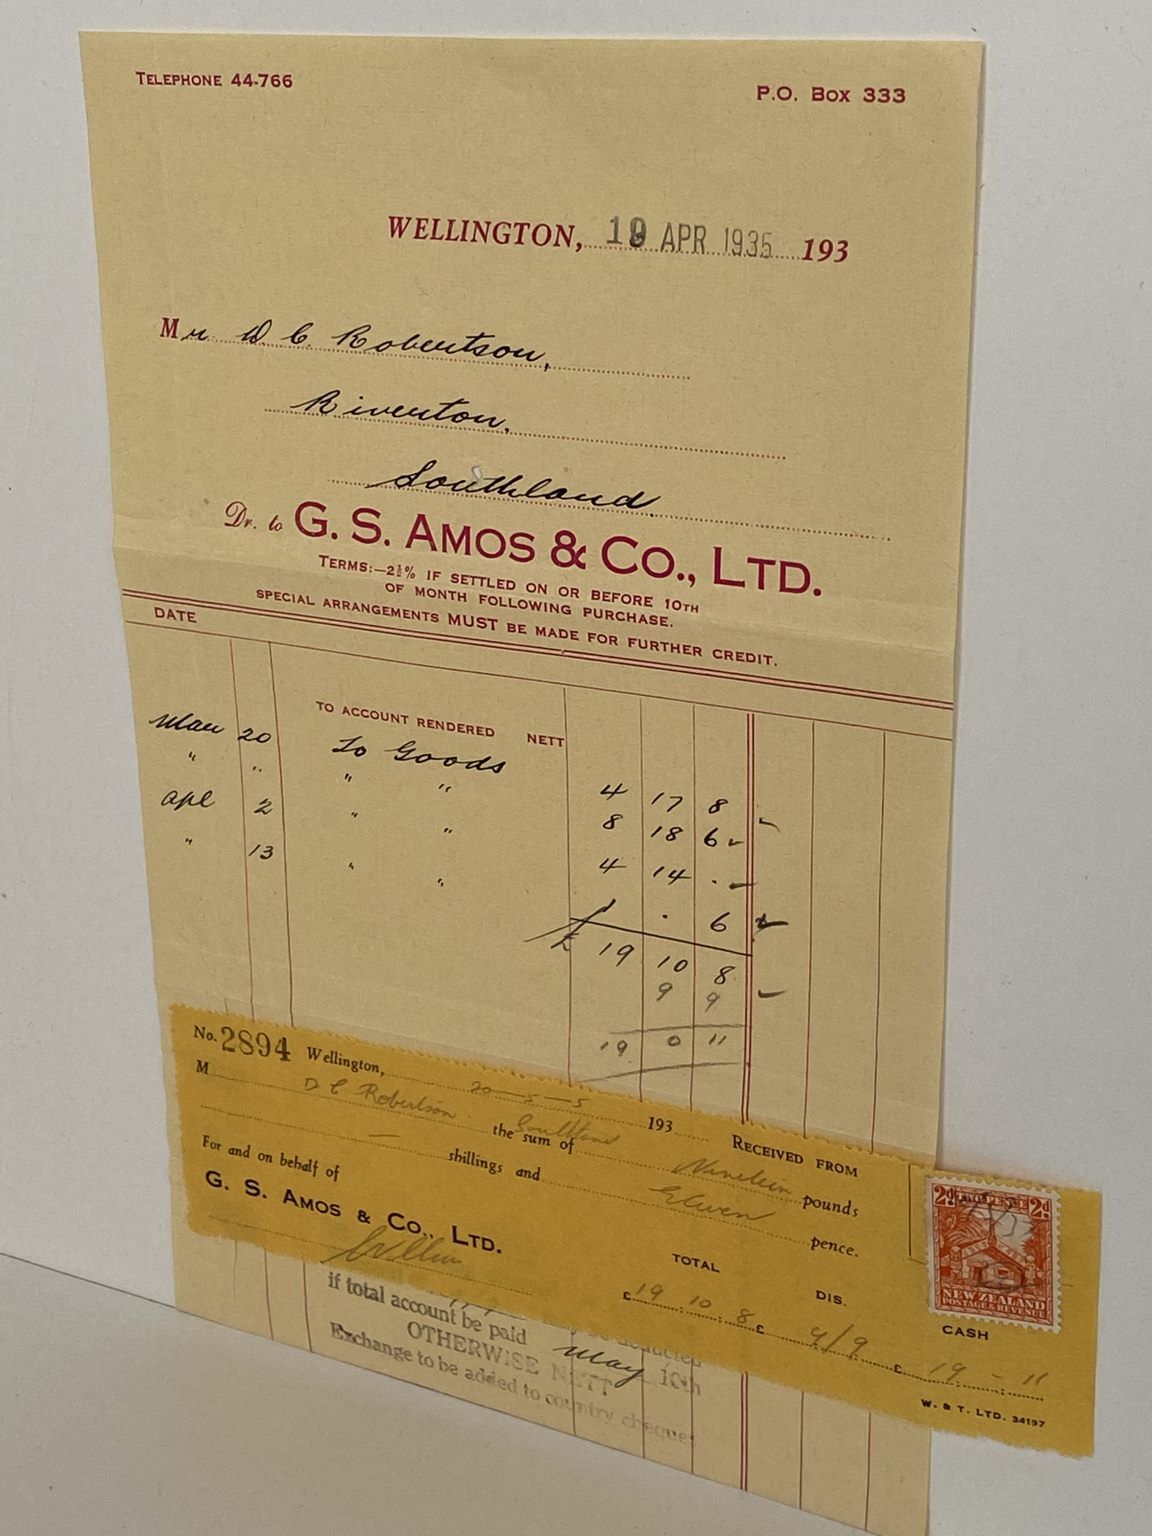 TELEPHONE 44-766
P.O. BOX 333
WELLINGTON, 19 APR 1935 193
Mr D. C. Robertson,
Riverton.
Southland.
Dr. to G. S. AMOS & CO., LTD.
TERMS:—2½% IF SETTLED ON OR BEFORE 10TH
OF MONTH FOLLOWING PURCHASE.
SPECIAL ARRANGEMENTS MUST BE MADE FOR FURTHER CREDIT.
DATE
TO ACCOUNT RENDERED NETT
Mar 20 To Goods 4 17 8
" " " " 8 18 6
Apl 2 " " 4 14 .
" 13 " " 1 . 6
£ 19 10 8
9 9
19 0 11
No. 2894 Wellington, 20—5—5 193 RECEIVED FROM
M D C Robertson Southland
the sum of Nineteen pounds
— shillings and Eleven pence.
For and on behalf of
G. S. AMOS & CO., LTD.
TOTAL DIS. CASH
£ 19 . 10 . 8 £ 9/9 £ 19 - 11
W. & T. LTD. 34197
2d TWO PENCE 2d
NEW ZEALAND
POSTAGE & REVENUE
be deducted
if total account be paid May 10th
OTHERWISE NETT
Exchange to be added to country cheques